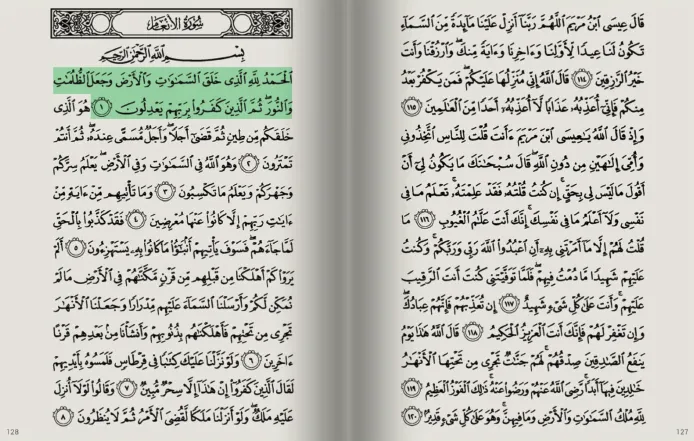 قَالَ عِيسَى ابْنُ مَرْيَمَ اللَّهُمَّ رَبَّنَا أَنزِلْ عَلَيْنَا مَآئِدَةً مِّنَ السَّمَآءِ
تَكُونُ لَنَا عِيدًا لِّأَوَّلِنَا وَءَاخِرِنَا وَءَايَةً مِّنكَ وَارْزُقْنَا وَأَنتَ
خَيْرُ الرَّٰزِقِينَ ١١٤ قَالَ اللَّهُ إِنِّي مُنَزِّلُهَا عَلَيْكُمْ فَمَن يَكْفُرْ بَعْدُ
مِنكُمْ فَإِنِّي أُعَذِّبُهُ عَذَابًا لَّا أُعَذِّبُهُ أَحَدًا مِّنَ الْعَٰلَمِينَ ١١٥
وَإِذْ قَالَ اللَّهُ يَٰعِيسَى ابْنَ مَرْيَمَ ءَأَنتَ قُلْتَ لِلنَّاسِ اتَّخِذُونِي
وَأُمِّيَ إِلَٰهَيْنِ مِن دُونِ اللَّهِ قَالَ سُبْحَٰنَكَ مَا يَكُونُ لِي أَنْ
أَقُولَ مَا لَيْسَ لِي بِحَقٍّ إِن كُنتُ قُلْتُهُ فَقَدْ عَلِمْتَهُ تَعْلَمُ مَا فِي
نَفْسِي وَلَا أَعْلَمُ مَا فِي نَفْسِكَ إِنَّكَ أَنتَ عَلَّٰمُ الْغُيُوبِ ١١٦ مَا
قُلْتُ لَهُمْ إِلَّا مَا أَمَرْتَنِي بِهِ أَنِ اعْبُدُوا اللَّهَ رَبِّي وَرَبَّكُمْ وَكُنتُ
عَلَيْهِمْ شَهِيدًا مَّا دُمْتُ فِيهِمْ فَلَمَّا تَوَفَّيْتَنِي كُنتَ أَنتَ الرَّقِيبَ
عَلَيْهِمْ وَأَنتَ عَلَىٰ كُلِّ شَيْءٍ شَهِيدٌ ١١٧ إِن تُعَذِّبْهُمْ فَإِنَّهُمْ عِبَادُكَ
وَإِن تَغْفِرْ لَهُمْ فَإِنَّكَ أَنتَ الْعَزِيزُ الْحَكِيمُ ١١٨ قَالَ اللَّهُ هَٰذَا يَوْمُ
يَنفَعُ الصَّٰدِقِينَ صِدْقُهُمْ لَهُمْ جَنَّٰتٌ تَجْرِي مِن تَحْتِهَا الْأَنْهَٰرُ
خَٰلِدِينَ فِيهَا أَبَدًا رَّضِيَ اللَّهُ عَنْهُمْ وَرَضُوا عَنْهُ ذَٰلِكَ الْفَوْزُ الْعَظِيمُ ١١٩
لِلَّهِ مُلْكُ السَّمَٰوَٰتِ وَالْأَرْضِ وَمَا فِيهِنَّ وَهُوَ عَلَىٰ كُلِّ شَيْءٍ قَدِيرٌ ١٢٠
127
سُورَةُ الأنعام
بِسْمِ اللَّهِ الرَّحْمَٰنِ الرَّحِيمِ
الْحَمْدُ لِلَّهِ الَّذِي خَلَقَ السَّمَٰوَٰتِ وَالْأَرْضَ وَجَعَلَ الظُّلُمَٰتِ
وَالنُّورَ ثُمَّ الَّذِينَ كَفَرُوا بِرَبِّهِمْ يَعْدِلُونَ ١ هُوَ الَّذِي
خَلَقَكُم مِّن طِينٍ ثُمَّ قَضَىٰ أَجَلًا وَأَجَلٌ مُّسَمًّى عِندَهُ ثُمَّ أَنتُمْ
تَمْتَرُونَ ٢ وَهُوَ اللَّهُ فِي السَّمَٰوَٰتِ وَفِي الْأَرْضِ يَعْلَمُ سِرَّكُمْ
وَجَهْرَكُمْ وَيَعْلَمُ مَا تَكْسِبُونَ ٣ وَمَا تَأْتِيهِم مِّنْ ءَايَةٍ مِّنْ
ءَايَٰتِ رَبِّهِمْ إِلَّا كَانُوا عَنْهَا مُعْرِضِينَ ٤ فَقَدْ كَذَّبُوا بِالْحَقِّ
لَمَّا جَآءَهُمْ فَسَوْفَ يَأْتِيهِمْ أَنۢبَٰٓؤُا مَا كَانُوا بِهِ يَسْتَهْزِءُونَ ٥ أَلَمْ
يَرَوْا كَمْ أَهْلَكْنَا مِن قَبْلِهِم مِّن قَرْنٍ مَّكَّنَّٰهُمْ فِي الْأَرْضِ مَا لَمْ
نُمَكِّن لَّكُمْ وَأَرْسَلْنَا السَّمَآءَ عَلَيْهِم مِّدْرَارًا وَجَعَلْنَا الْأَنْهَٰرَ
تَجْرِي مِن تَحْتِهِمْ فَأَهْلَكْنَٰهُم بِذُنُوبِهِمْ وَأَنشَأْنَا مِن بَعْدِهِمْ قَرْنًا
ءَاخَرِينَ ٦ وَلَوْ نَزَّلْنَا عَلَيْكَ كِتَٰبًا فِي قِرْطَاسٍ فَلَمَسُوهُ بِأَيْدِيهِمْ
لَقَالَ الَّذِينَ كَفَرُوا إِنْ هَٰذَا إِلَّا سِحْرٌ مُّبِينٌ ٧ وَقَالُوا لَوْلَا أُنزِلَ
عَلَيْهِ مَلَكٌ وَلَوْ أَنزَلْنَا مَلَكًا لَّقُضِيَ الْأَمْرُ ثُمَّ لَا يُنظَرُونَ ٨
128